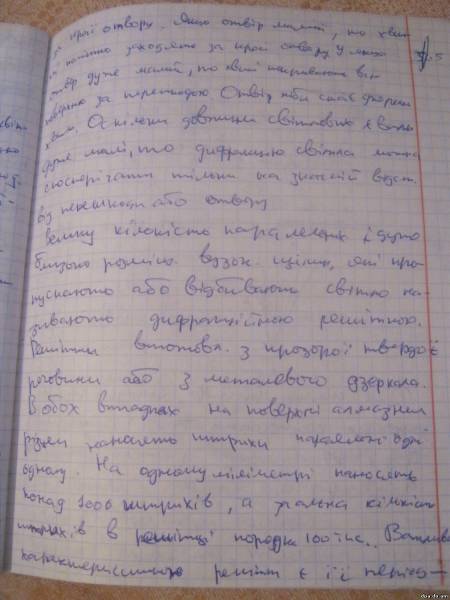 за краї отвору. Якщо отвір малий, то хвилі
помітно заходять за краї отвору. У якщо
отвір дуже малий, то хвилі
за перешкодою Отвір ніби стає джерелом
хвиль. Оскільки довжини світлових хвиль
дуже малі, то дифракцію світла можна
спостерігати тільки на значній відст.
від перешкоди або отвору
Велику кількість паралельних і дуже
близько розміщ. вузьк. щілин, які про-
пускають або відбивають світло на-
зивають дифракційною решіткою.
Решітки виготовл. з прозорої твердої
речовини або з металевого дзеркала.
В обох випадках на поверхні алмазним
різцем наносять штрихи паралельні одні
одному. На одному міліметрі наносять
понад 1000 штрихів, а загальна кількість
штрихів в решітці порядка 100 тис. Важлива
характеристикою решітки є її період –
dza.dp.am